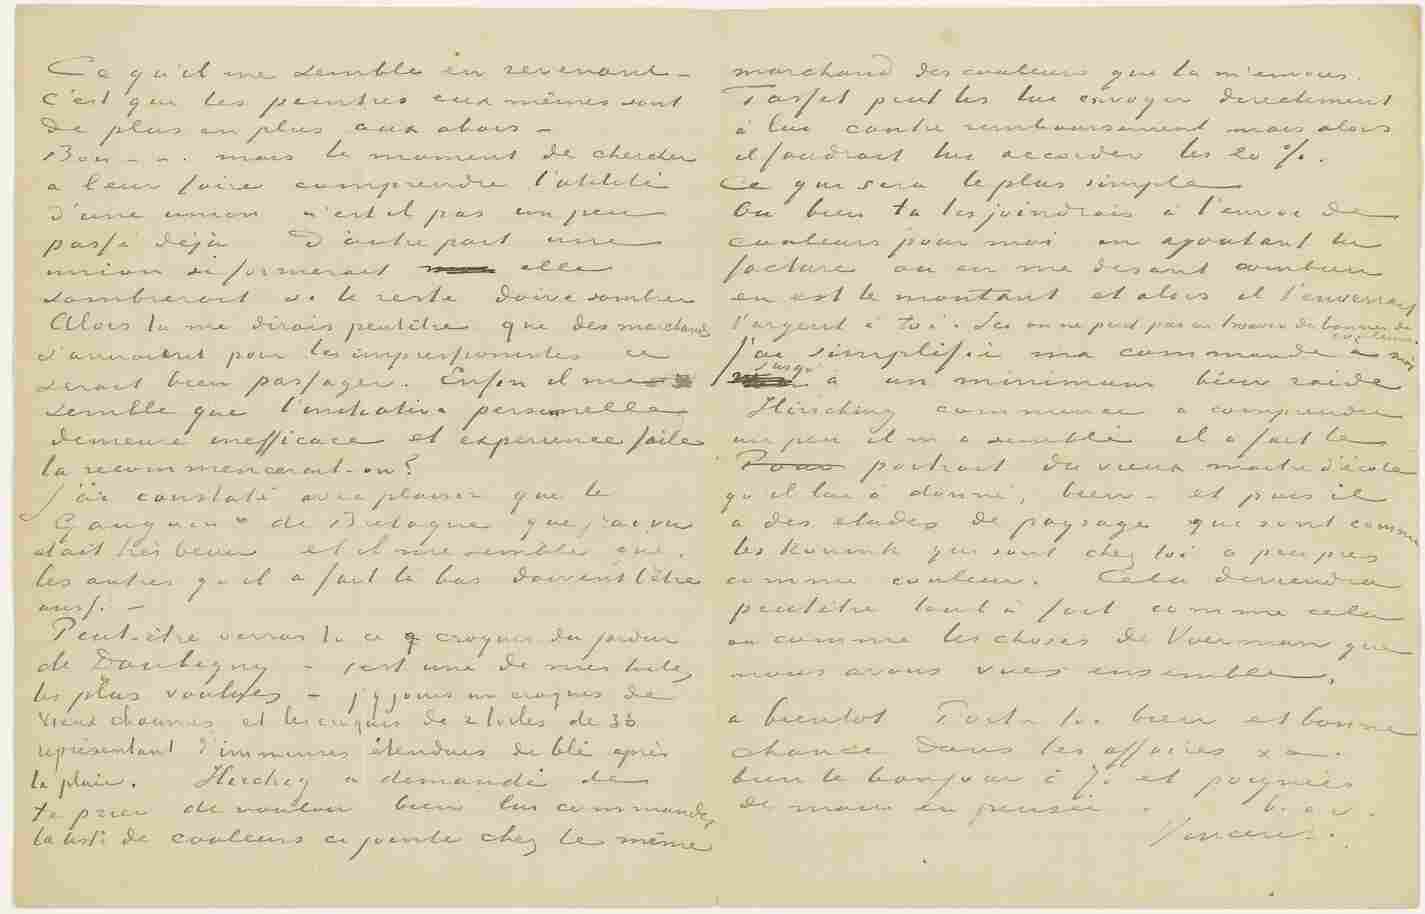 Ce qu'il me semble en revenant –
c'est que les peintres eux mêmes sont
de plus en plus aux abois –
Bon – . mais le moment de chercher
à leur faire comprendre l'utilité
d'une union n'est il pas un peu
passé déjà D'autre part une
union se formerait elle
sombrerait si le reste doive sombrer
Alors tu me dirais peutêtre que des marchands
s'uniraient pour les impressionistes ce
serait bien passager. Enfin il me
semble que l'initiative personelle
demeure inefficace et experience faite
la recommencerait-on?
J'ai constaté avec plaisir que le
Gauguin de Bretagne que j'ai vu
était très beau et il me semble que
les autres qu'il a fait là bas doivent l'être
aussi. –
Peut-être verras tu ce croquis du jardin
de Daubigny – c'est une de mes toiles
les plus voulues – j'y joins un croquis de
vieux chaumes et les croquis de 2 toiles de 30
représentant d'immenses étendues de blé après
la pluie. Hirschig a demandé de
te prier de vouloir bien lui commander
la liste de couleurs ci jointe chez le même
marchand des couleurs que tu m'envoies.
Tasset peut les lui envoyer directement
à lui contre remboursement mais alors
il faudrait lui accorder les 20 %.
Ce qui sera le plus simple
Ou bien tu les joindrais à l'envoi de
couleurs pour moi en ajoutant la
facture ou en me disant combien
en est le montant et alors il t'enverrait
l'argent à toi. Ici on ne peut pas en trouver de bonnes de
couleurs.
J'ai simplifié ma commande à moi
jusqu'
à un minimum bien raide
Hirschig commence à comprendre
un peu il m'a semblé il a fait le
portrait du vieux maitre d'école
qu'il lui a donné, bien – et puis il
a des etudes de paysage qui sont comme
les Konink qui sont chez toi à peu près
comme couleur. Cela deviendra
peutêtre tout à fait comme cela
ou comme les choses de Voerman que
nous avons vues ensemble.
à bientot Porte toi bien et bonne
chance dans les affaires &a.
bien le bonjour à Jo et poignées
de main en pensée. t. à v.
Vincent.